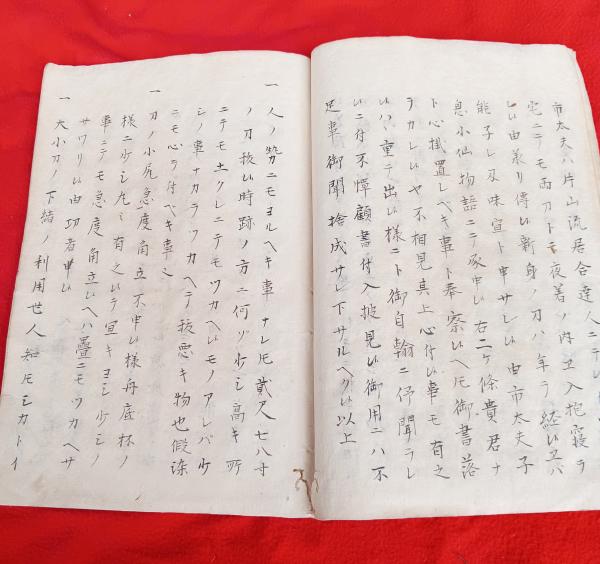 市太夫ハ片山流居合達人ニテ
宅ニテモ両刀トモ夜着ノ内ヱ入抱寝ラ
レい由承リ傳い新身ノ刀ハ年ラ経いヱハ
能子レ及味宣ト申サレい由市太夫子
息小仙物語ニテ承申い右二ケ條貴君ナ
ト心掛置レベキ事ト奉察いヘ𪜈御書落
ラカレいヤ不相見其上心付い事モ有之
いハヽ重テ出い様ニト御自翰ニ伊聞ラレ
いニ付不憚顧書付入披見い御用ニハ不
足事御聞捨成サレ下サルヘクい以上
一 人ノ㔟ニモヨルヘキ事ナレ𪜈貳尺七八寸
ノ刀抜い時跡ノ方ニ何ソ少シ高キ所
ニテモ土クレニテモツカヘいモノアレバ少
シノ事ナカラツカヘテ抜悪キ物也假染
ニモ心ラ付ベキ事
一 刀ノ小尻急度角立不申い様舟底杯ノ
様ニ少シ𪜈ミ有之いラ宣キヨシ少シノ
事ニテモ急度角立いヘハ疊ニモツカヘサ
ワリい由功者申い
一 大小刀ノ下緒ノ利用世人知𪜈シカトイ